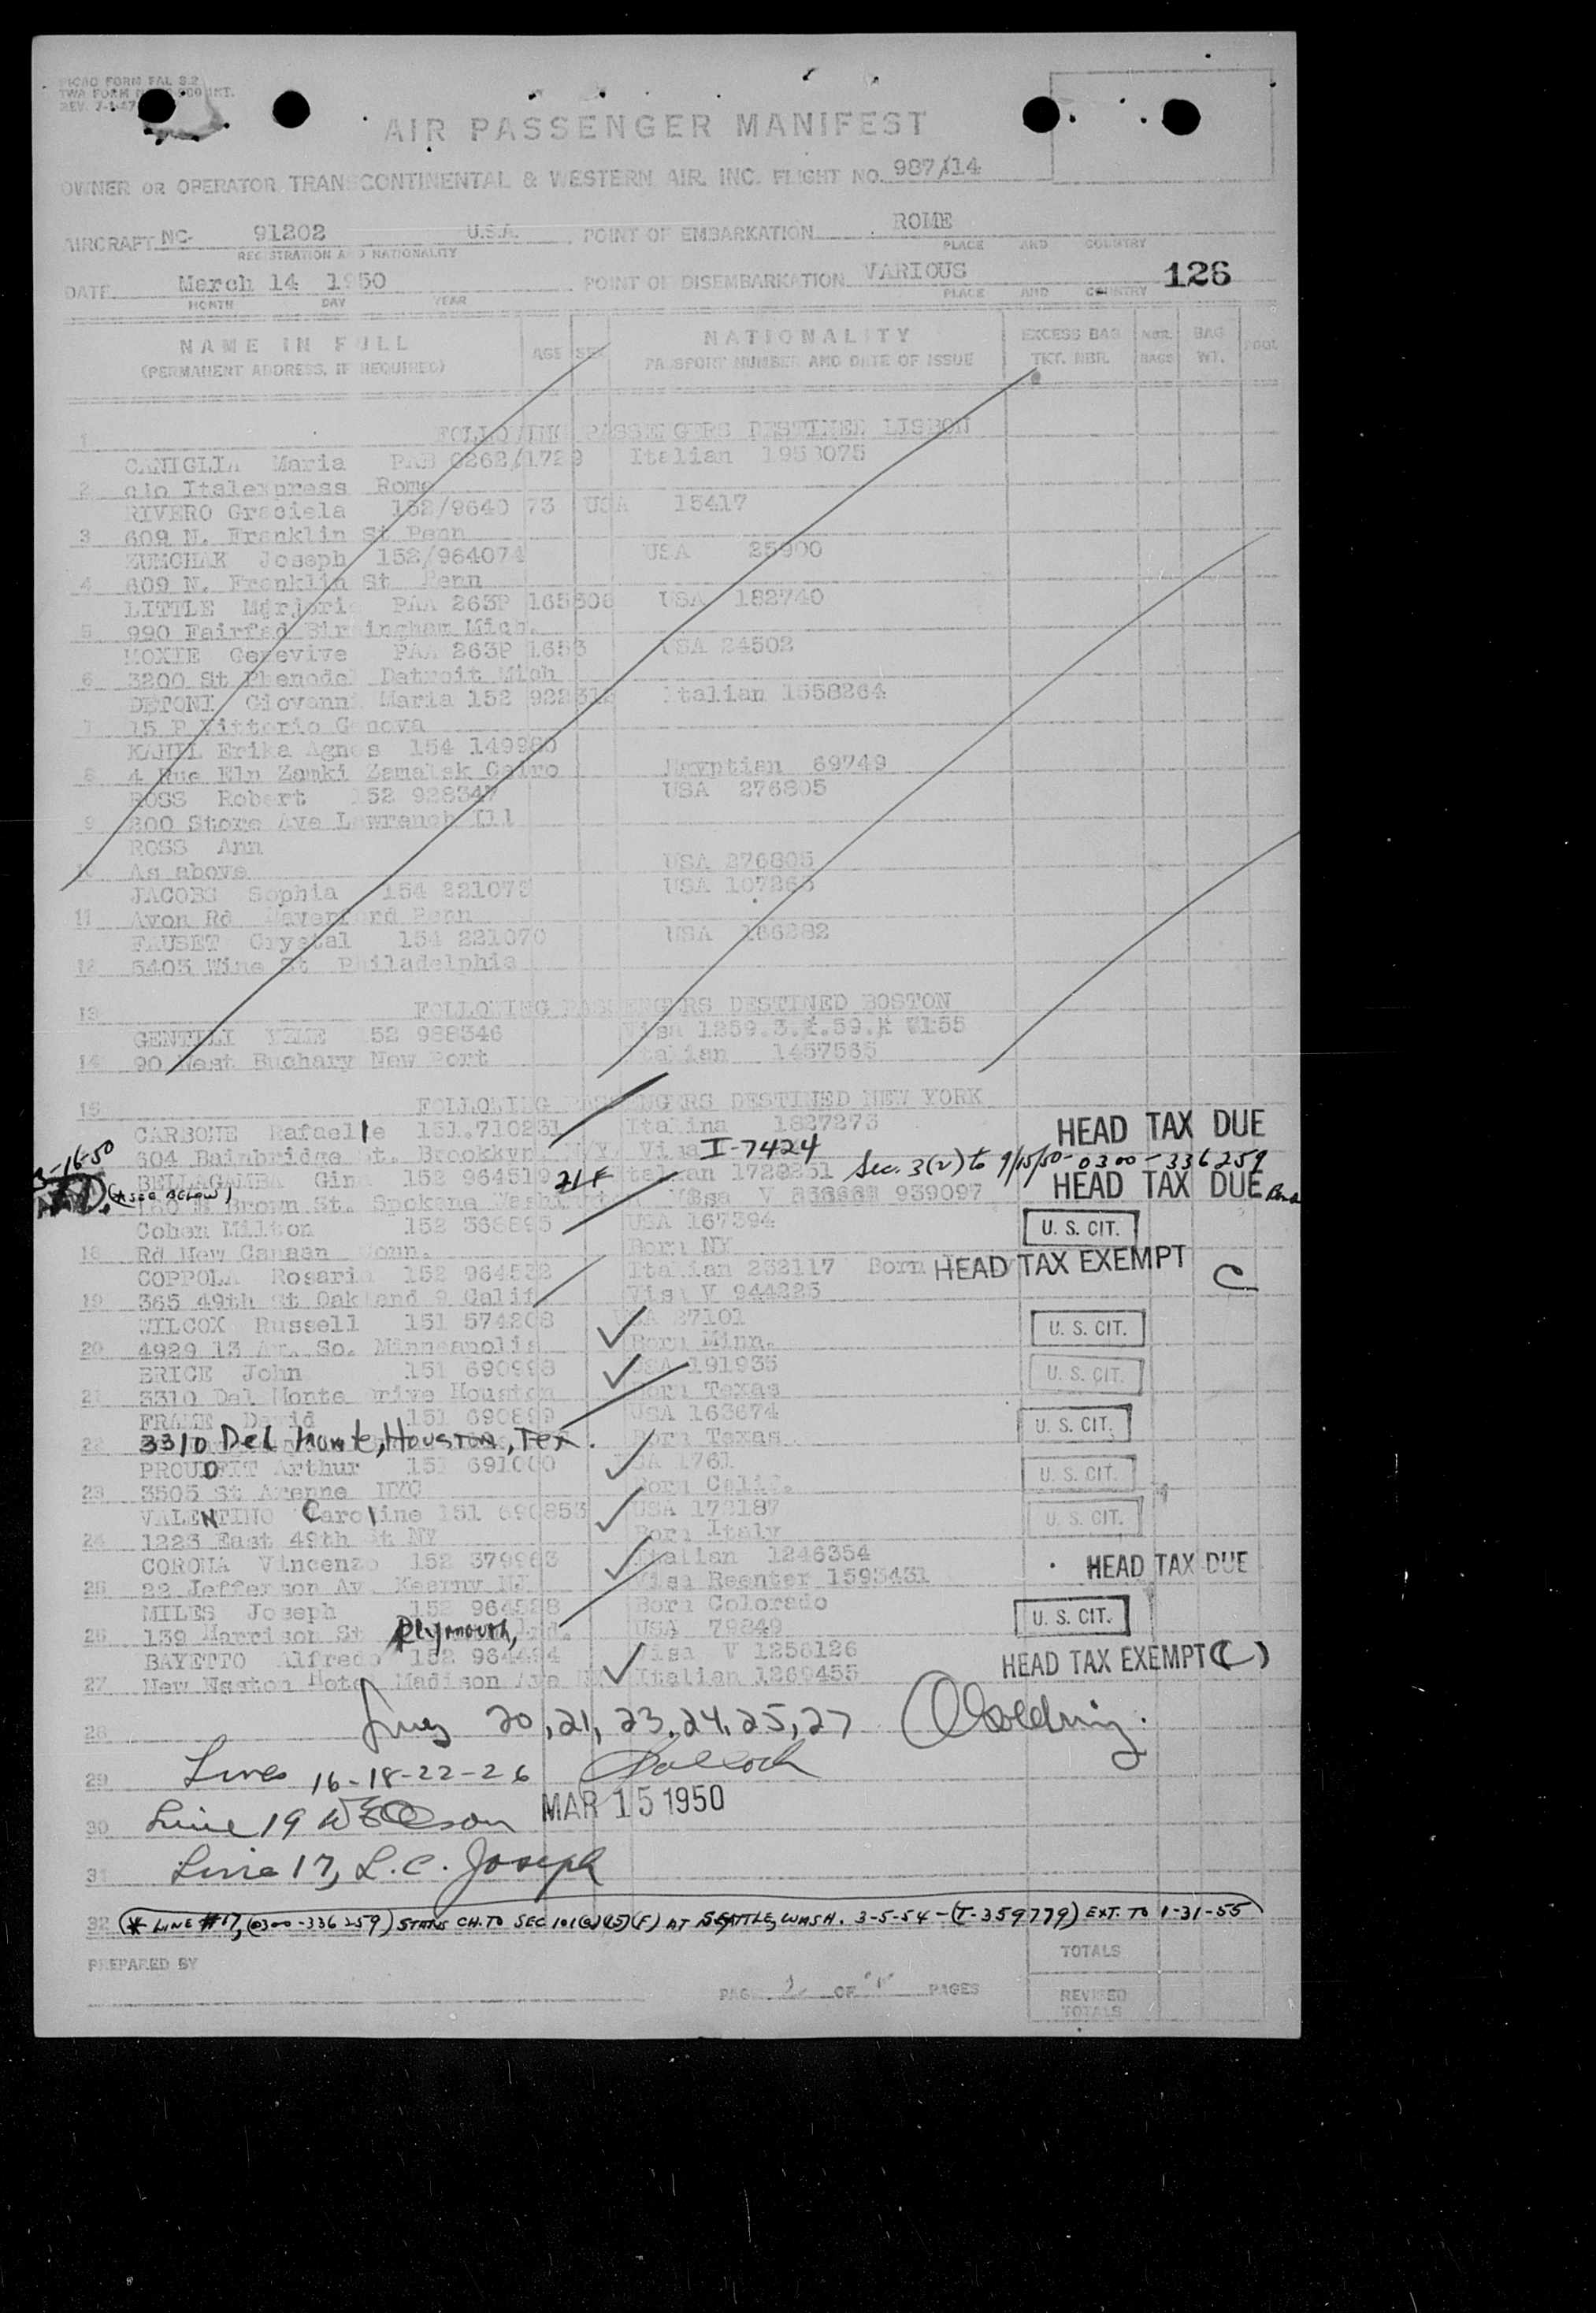 PICAO FORM FAL 3.2
TWA FORM INT.
REV. 7-1-47
AIR PASSENGER MANIFEST
OWNER OR OPERATOR TRANSCONTINENTAL & WESTERN AIR. INC. FLIGHT NO. 987/14
AIRCRAFT NC- 91202 U.S.A. POINT OF EMBARKATION ROME
REGISTRATION AND NATIONALITY PLACE AND COUNTRY
DATE March 14 1950 POINT OF DISEMBARKATION VARIOUS 126
MONTH DAY YEAR PLACE AND COUNTRY
NAME IN FULL AGE SEX NATIONALITY EXCESS BAG NBR. BAG
(PERMANENT ADDRESS, IF REQUIRED) PASSPORT NUMBER AND DATE OF ISSUE TKT. NBR. BAGS WT.
1 FOLLOWING PASSENGERS DESTINED LISBON
CANIGLIA Maria 6262/1729 Italian 1953075
2 c/o Italexpress Rome
RIVERO Graciela 152/964073 USA 15417
3 609 N. Franklin St Penn
ZUMCHAK Joseph 152/964074 USA 25900
4 609 N. Franklin St Penn
LITTLE Marjorie PAA 263P 165806 USA 182740
5 990 Fairfad Birmingham Mich.
MOXIE Genevive PAA 263P 1653 USA 24502
6 3200 St Detroit Mich
DETONI Giovanni Maria 152 Italian 1658264
7 15 P Vittorio Genova
KAHIL Erika Agnes 154 149980
8 4 Rue Eln Zamki Zamalek Cairo Egyptian 69749
ROSS Robert 152 928347 USA 276805
9 800 Store Ave Lawrench Ill
ROSS Ann
10 As above USA 276805
JACOBS Sophia 154 221075 USA 107265
11 Avon Rd Haverford Penn
FAUSET Crystal 154 221070 USA 166282
12 5403 Wine St Philadelphia
13 FOLLOWING PASSENGERS DESTINED BOSTON
GENTILI 152 988346 Visa
14 90 West Buchary New Port Italian 1457565
15 FOLLOWING PASSENGERS DESTINED NEW YORK
CARBONE Rafaelle 151.710231 Italina 1827273 HEAD TAX DUE
604 Bainbridge St. Brookkyn. N.Y. Visa I-7424
3-16-50 BELLAGAMBA Gina 152 964519 21F Italian 1728251 Sec. 3(2) to 9/15/50-0300-336259
(* SEE BELOW) Brown St. Spokane Washington Visa V 939097 HEAD TAX DUE
Cohen Milton 152 366895 USA 167394 U. S. CIT.
18 Rd New Canaan Conn. Born NY
COPPOLA Rosaria 152 964532 Italian 232117 Born HEAD TAX EXEMPT C
19 365 49th St Oakland 9 Calif Visa V 944225
WILCOX Russell 151 574208 USA 27101 U. S. CIT.
20 4929 13 Av. So. Minneapolis Born Minn.
BRICE John 151 690998 USA 191935 U. S. CIT.
21 3310 Del Monte Drive Houston Born Texas
FRAME David 151 690899 USA 163674 U. S. CIT.
22 3310 Del Monte, Houston, Tex. Born Texas
PROUDFIT Arthur 151 691000 USA 1761 U. S. CIT.
23 3505 St Avenne NYC Born Calif.
VALENTINO Caroline 151 690853 USA 172187 U. S. CIT.
24 1223 East 49th St NY Born Italy
CORONA Vincenzo 152 379963 Italian 1246354 HEAD TAX DUE
25 22 Jefferson Av. Kearny NJ Visa Reenter 1593431
MILES Joseph 152 964528 Born Colorado U. S. CIT.
26 139 Harrison St Plymouth, Ind. USA 79849
BAYETTO Alfredo 152 964494 Visa V 1256126 HEAD TAX EXEMPT (C)
27 New Weston Hotel Madison Ave NY Italian 1269455
28 Lines 20, 21, 23, 24, 25, 27 Golding.
29 Lines 16-18-22-26
30 Line 19 MAR 15 1950
31 Line 17, L.C. Joseph
32 (* LINE #17, (0300-336259) STATUS CH. TO SEC 101(a)(15)(F) AT SEATTLE, WASH. 3-5-54-(T-359779) EXT. TO 1-31-55)
PREPARED BY TOTALS
PAGE 2 OF PAGES REVISED
TOTALS